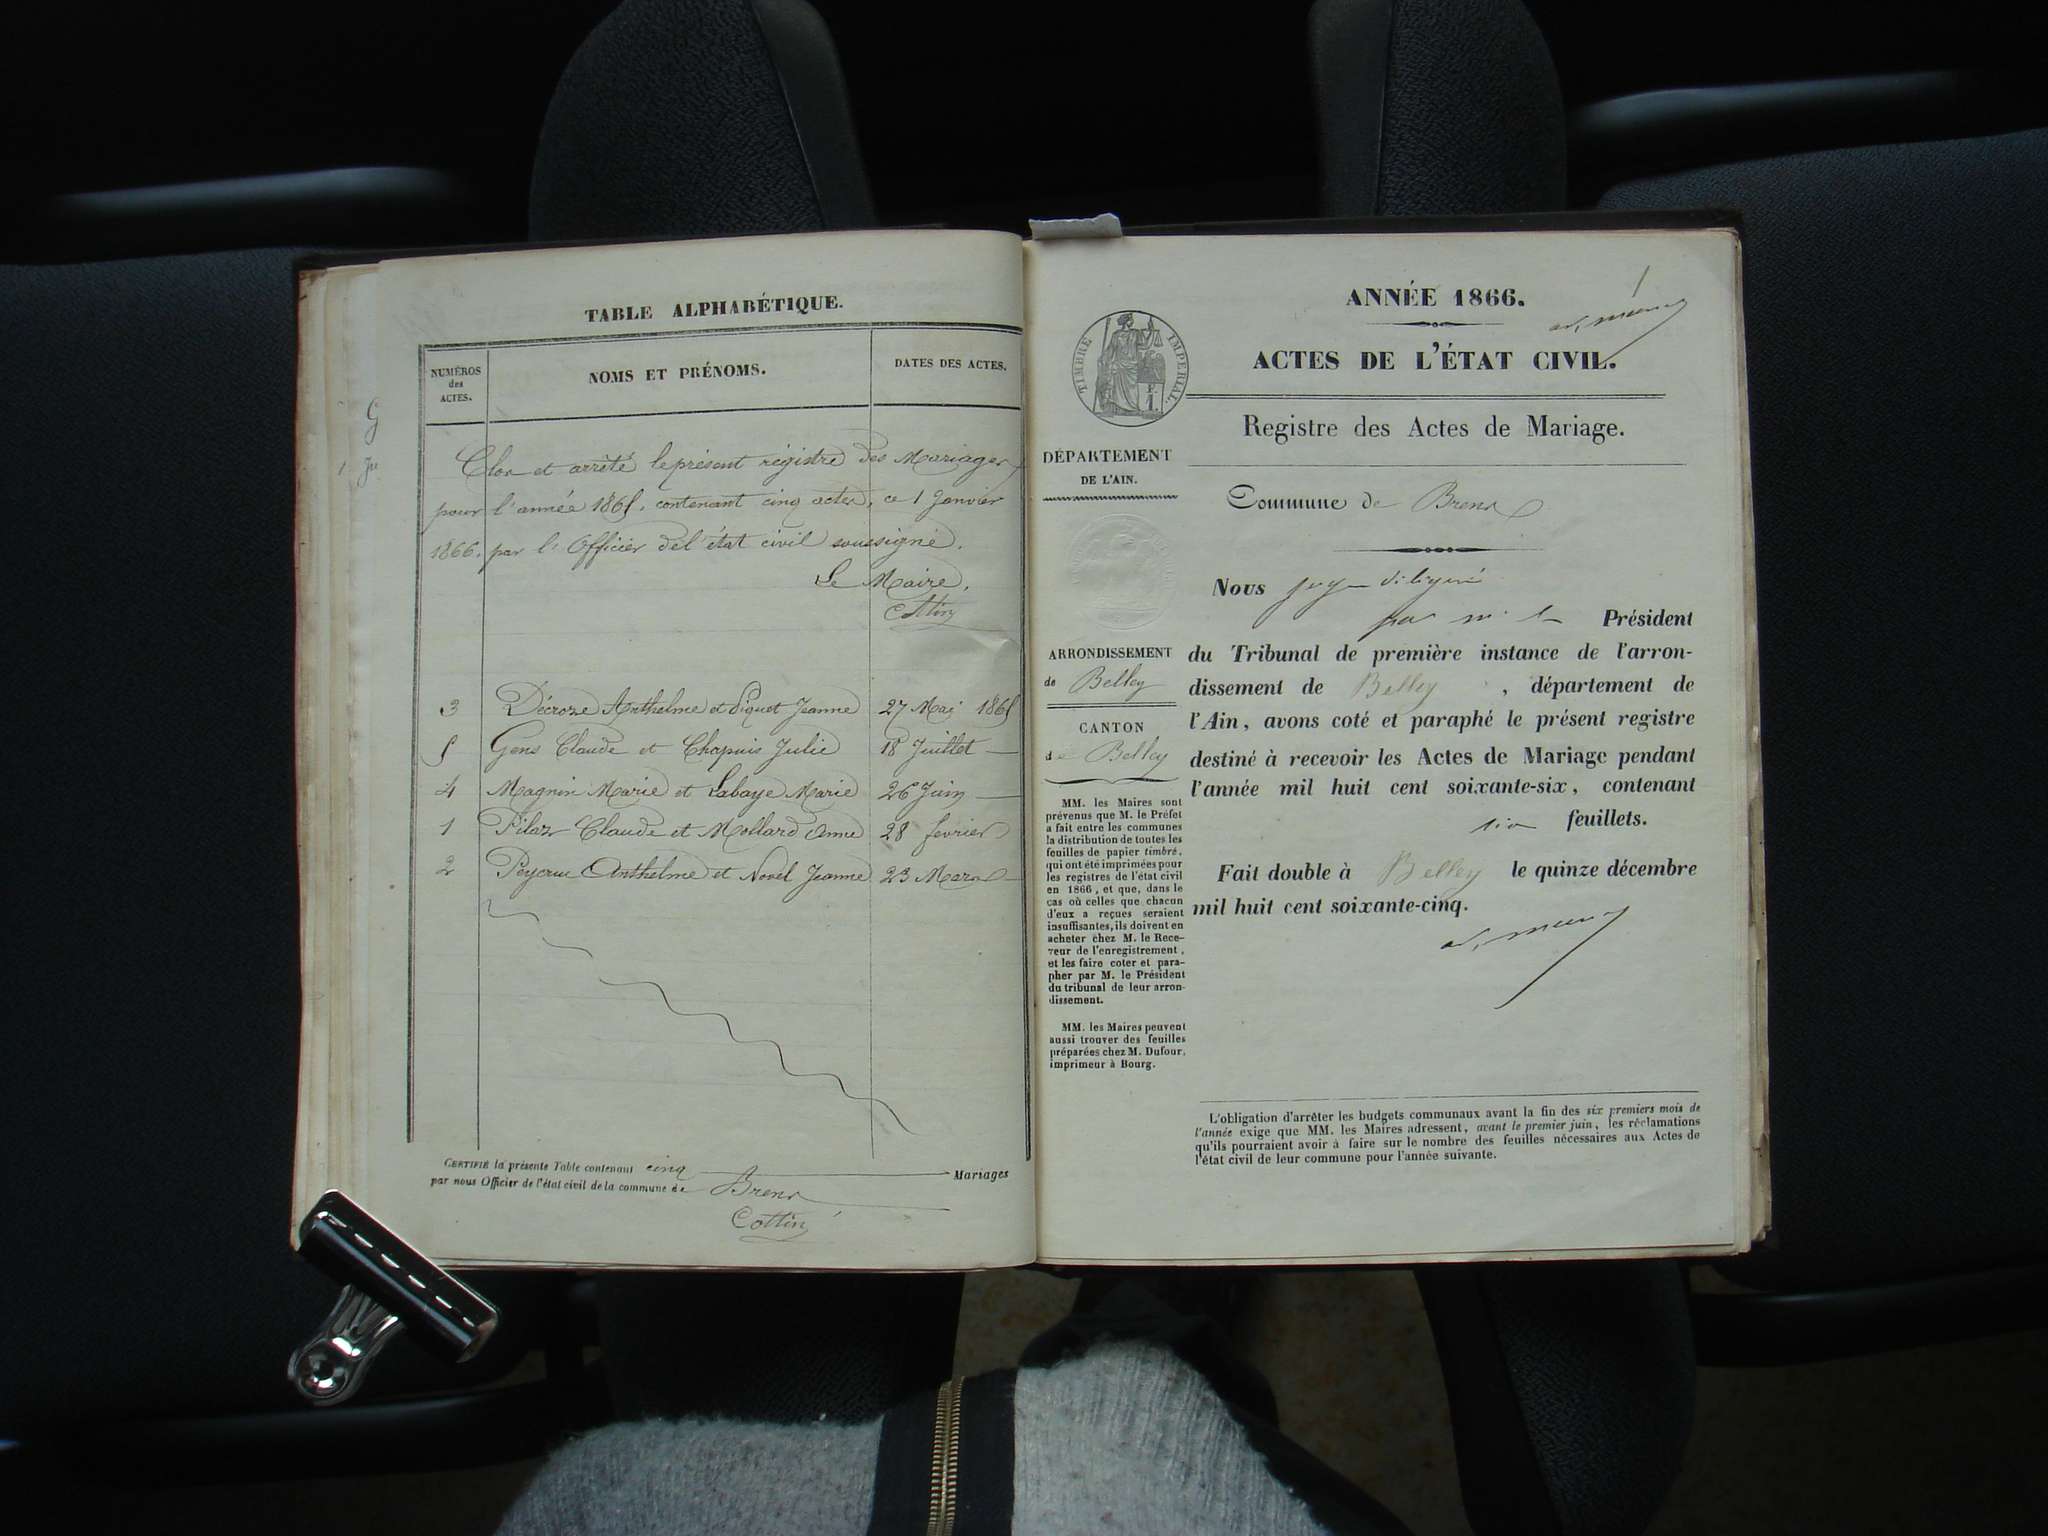 TABLE ALPHABÉTIQUE.
NUMÉROS
des
ACTES.
NOMS ET PRÉNOMS.
DATES DES ACTES.
Clos et arrêté le présent régistre des Mariages
pour l'année 1865, contenant cinq actes, ce 1 Janvier
1866, par l'Officier de l'état civil soussigné.
Le Maire,
Cottin
3 Décroze Anthelme et Piquet Jeanne 27 Mai 1865
5 Gens Claude et Chapuis Julie 18 Juillet —
4 Magnin Marie et Labaye Marie 26 Juin —
1 Pilaz Claude et Mollard Anne 28 fevrier
2 Peycru Anthelme et Novel Jeanne 23 Mars —
CERTIFIÉ la présente Table contenant cinq Mariages
par nous Officier de l'état civil de la commune de Brens
Cottin
ANNÉE 1866.
1
ACTES DE L'ÉTAT CIVIL.
TIMBRE IMPÉRIAL.
F.
1.
Registre des Actes de Mariage.
DÉPARTEMENT
DE L'AIN.
Commune de Brens
ARRONDISSEMENT
de Belley
CANTON
de Belley
MM. les Maires sont
prévenus que M. le Préfet
a fait entre les communes
la distribution de toutes les
feuilles de papier timbré,
qui ont été imprimées pour
les registres de l'état civil
en 1866, et que, dans le
cas où celles que chacun
d'eux a reçues seraient
insuffisantes, ils doivent en
acheter chez M. le Rece-
veur de l'enregistrement,
et les faire coter et para-
pher par M. le Président
du tribunal de leur arron-
dissement.
MM. les Maires peuvent
aussi trouver des feuilles
préparées chez M. Dufour,
imprimeur à Bourg.
Nous juge délégué
par m. le Président
du Tribunal de première instance de l'arron-
dissement de Belley, département de
l'Ain, avons coté et paraphé le présent registre
destiné à recevoir les Actes de Mariage pendant
l'année mil huit cent soixante-six, contenant
six feuillets.
Fait double à Belley le quinze décembre
mil huit cent soixante-cinq.
L'obligation d'arrêter les budgets communaux avant la fin des six premiers mois de
l'année exige que MM. les Maires adressent, avant le premier juin, les réclamations
qu'ils pourraient avoir à faire sur le nombre des feuilles nécessaires aux Actes de
l'état civil de leur commune pour l'année suivante.